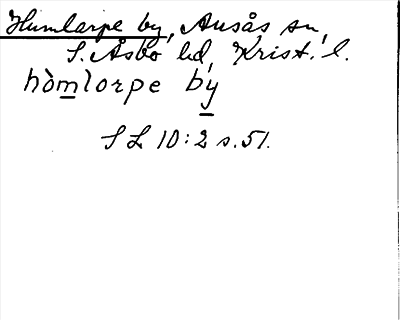 Humlarpe by, Ausås sn,
S. Åsbo hd, Krist. l.
hòmlorpe by
S L 10:2 s. 51.